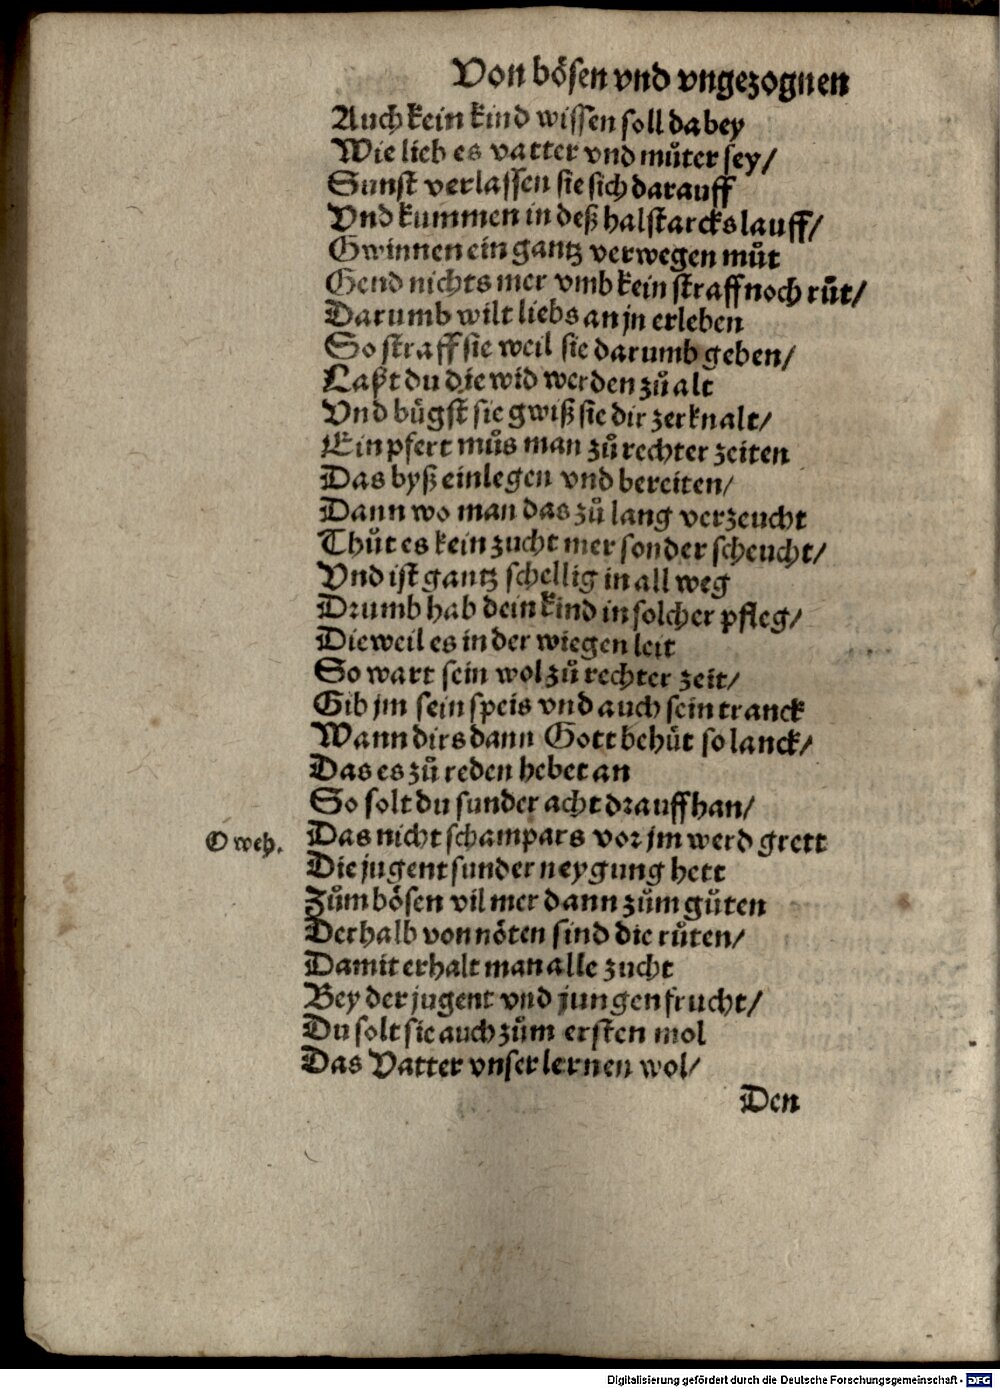 Von bösen vnd vngezognen
Auch kein kind wissen soll dabey
Wie lieb es vatter vnd můter sey/
Sunst verlassen sie sich darauff
Vnd kummen in deß halstarcks lauff/
Gwinnen ein gantz verwegen můt
Gend nichts mer vmb kein straff noch růt/
Darumb wilt liebs an jn erleben
So straff sie weil sie darumb geben/
Laßt du die wid werden zů alt
Vnd bügst sie gwiß sie dir zerknalt/
Ein pfert můs man zů rechter zeiten
Das byß einlegen vnd bereiten/
Dann wo man das zů lang verzeucht
Thůt es kein zucht mer sonder scheucht/
Vnd ist gantz schellig in all weg
Drumb hab dein kind in solcher pfleg/
Die weil es in der wiegen leit
So wart sein wol zů rechter zeit/
Gib jm sein speis vnd auch sein tranck
Wann dirs dann Gott behüt so lanck/
Das es zů reden hebet an
So solt du sunder acht drauff han/
O weh. Das nicht schampars vor jm werd grett
Die jugent sunder neygung hett
Zům bösen vil mer dann zům gůten
Derhalb von nöten sind die růten/
Damit erhalt man alle zucht
Bey der jugent vnd jungen frucht/
Du solt sie auch zům ersten mol
Das Vatter vnser lernen wol/
Den
Digitalisierung gefördert durch die Deutsche Forschungsgemeinschaft - DFG